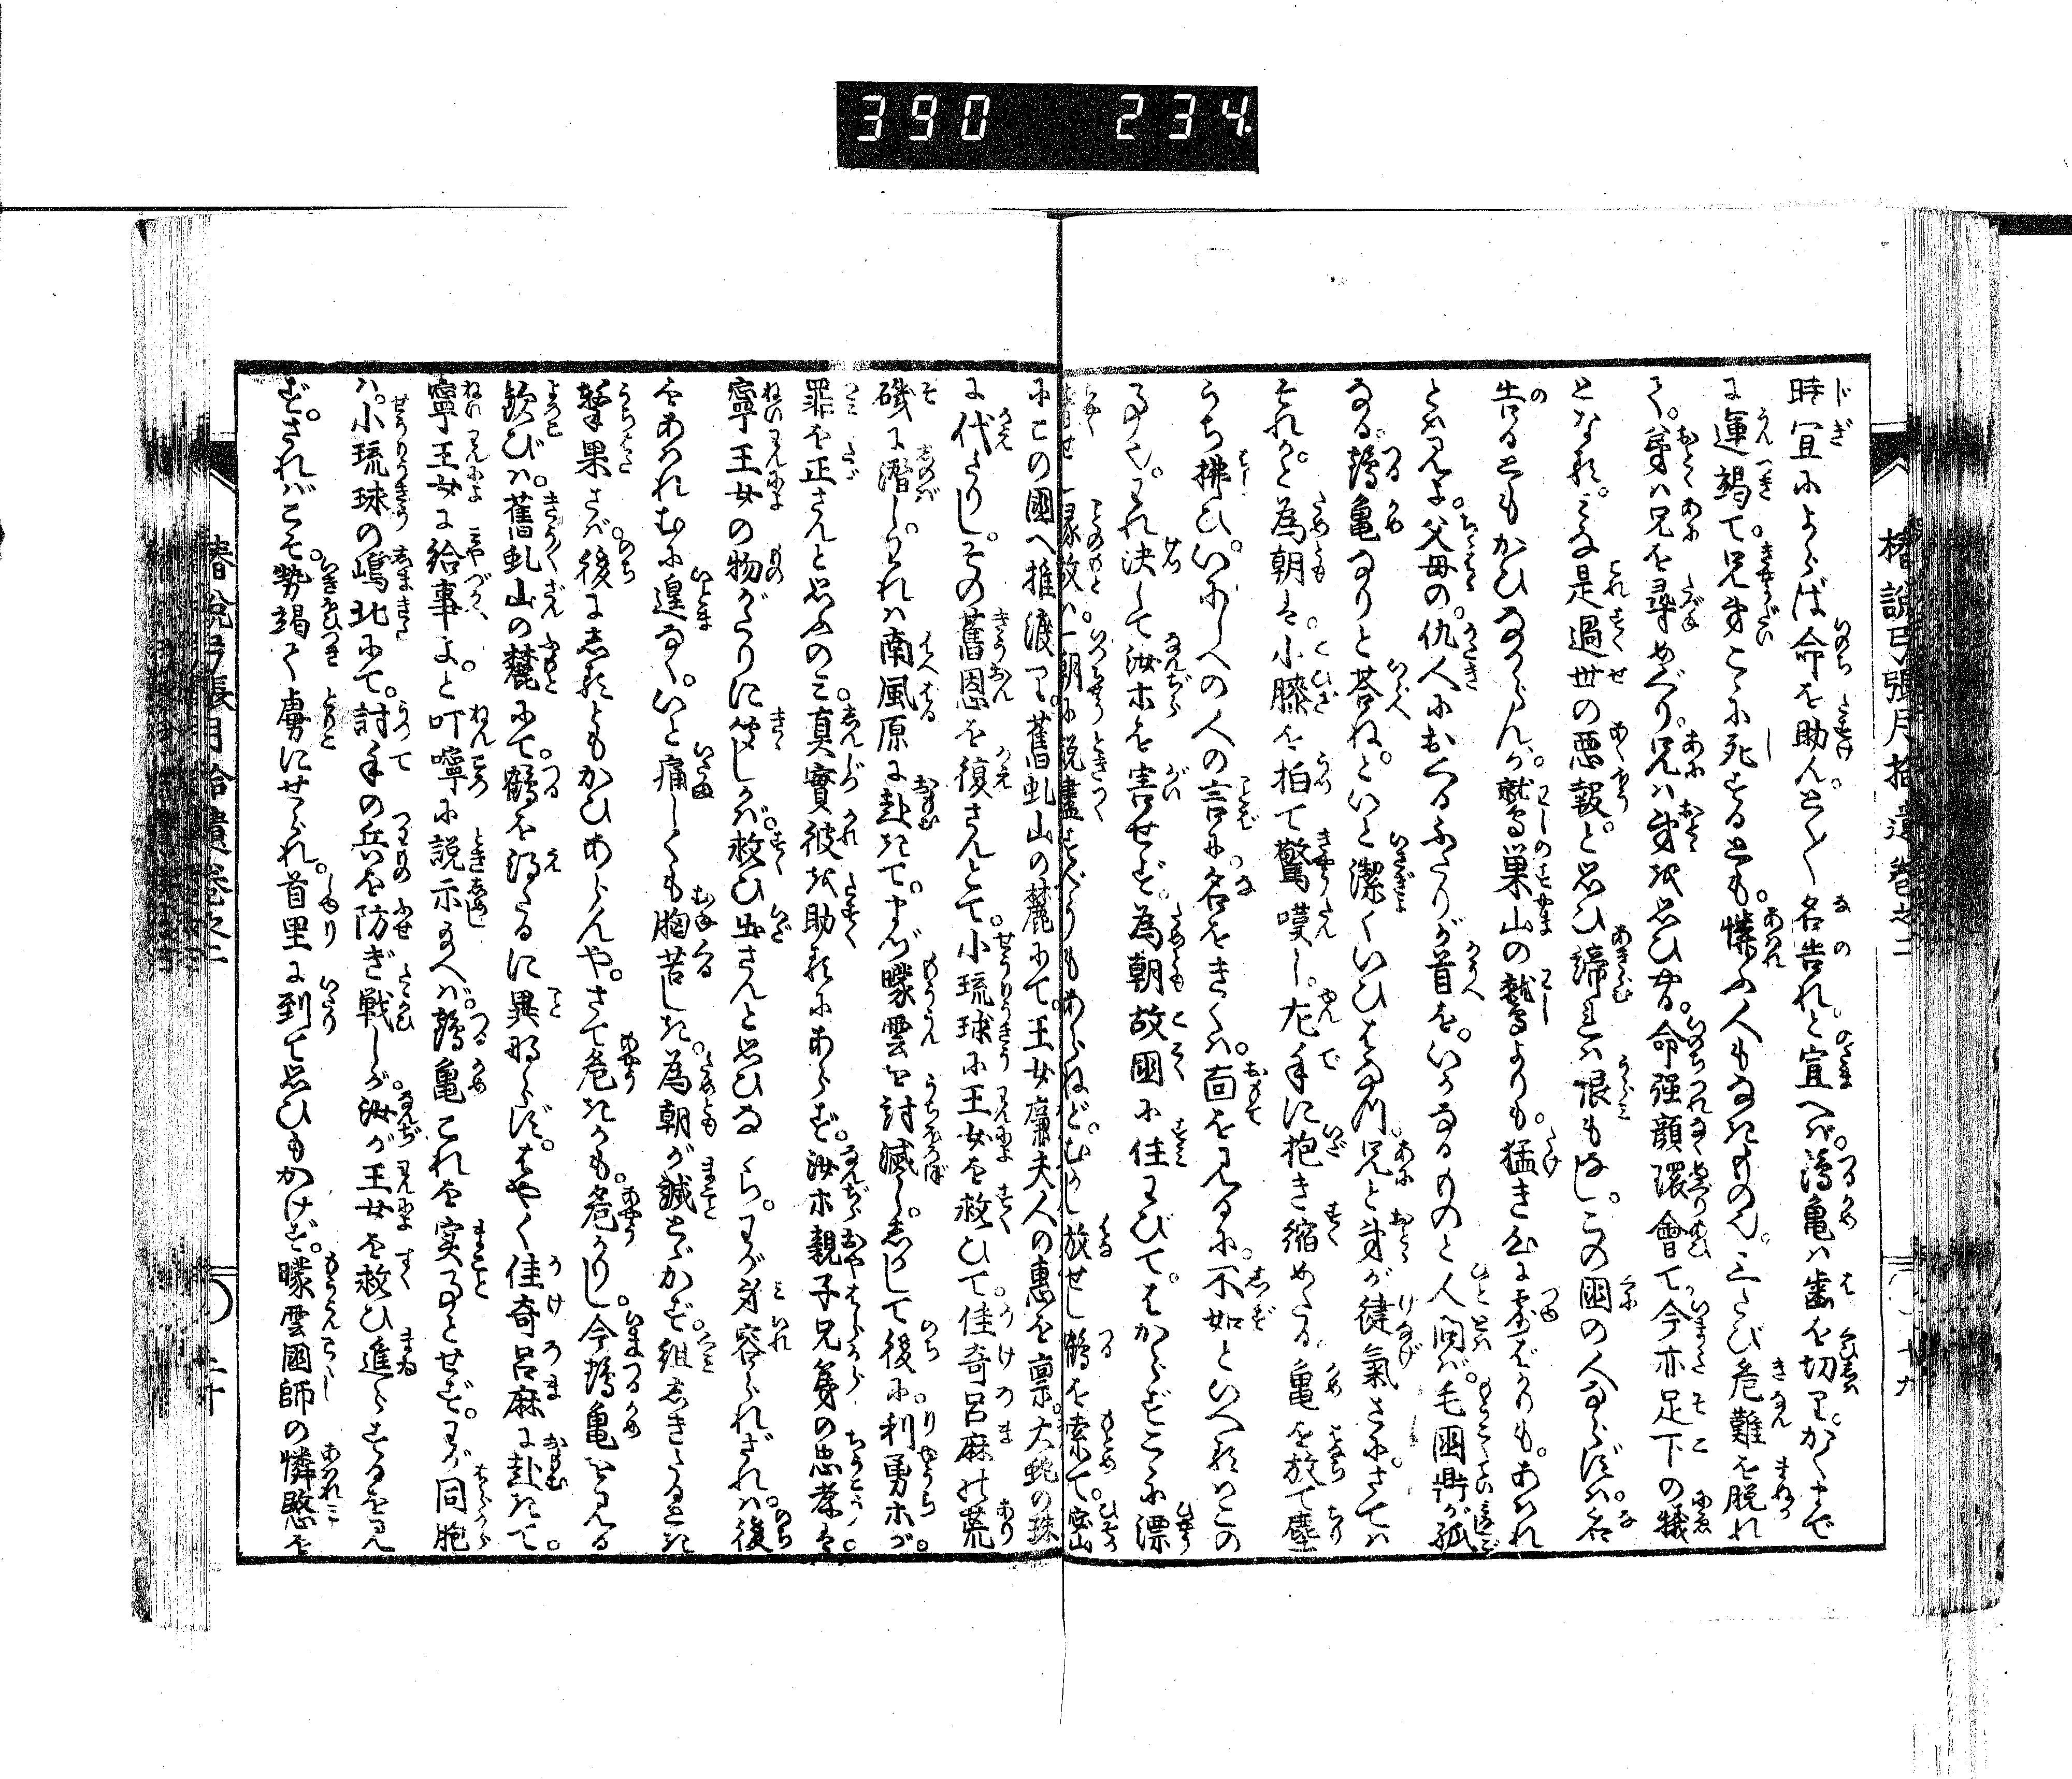 390 234
椿説弓張月拾遺巻之二 ○十九
時宜によらば命を助ん。とく〳〵名告れ。と宣へば。鶴亀は歯を切り。かくまで
に運竭て。兄弟こゝに死するとも。憐ふ人もなきものを。三たび危難を脱れ
て。弟は兄を尋めぐり。兄は弟を思ひ。命強顔環會て今亦足下の犠
となる。みな是過世の悪報と。思ひ諦れば恨もなし。この國の人ならずは名
告るともかひなからん。鷲巣山の鷲よりも。猛き
とは見よ。父母の。仇人におくるふたりが首を。いかなるものと人問ば。毛國鼎が孤
なる。鶴亀なりと荅ね。といと潔くいひはなつ。兄と弟が健氣さに。さては
それか。と為朝は。小膝を拍て驚嘆し。左手に抱き縮めたる。亀を放て塵
うち拂ひ。いにしへの人の言に。名をきくは。面を見るに。不如といへるはこの
事也。われ決して汝等を害せず。為朝故國に住わびて。はからずこゝに漂
一朝に説盡すべうもあらねど。むかし放せし鶴を索て。
にこの國へ推渡り。舊虬山の麓にて。王女廉夫人の惠を禀。大蛇の珠
に代たりし。その舊恩を復さんとて。小琉球に王女を救ひて。佳奇呂麻の荒
磯に潜し。われは南風原に赴きて。まづ矇雲を討滅し。しかして後に利勇等が。
罪を正さんと思ふのみ。真實彼を助るにあらず。汝等親子兄弟の忠孝は。
寧王女の物がたりに聞しかば。救ひ出さんと思ひながら。わが身容られざれば。後
をあはれむに遑なく。いと痛しくも胸苦しき。為朝が誠をしらず。組しきたるとき
撃果さば。後にしるともかひあらんや。さて危きかも。危かりし。今鶴亀を見る
歓びは。舊虬山の麓にて。鶴を得たるに異ならず。はやく佳奇呂麻に赴きて。
寧王女に給事よ。と叮嚀に説示し給へば。鶴亀これを実事とせず。わが同胞
は。小琉球の嶋北にて。討手の兵を防ぎ戦しが。汝が王女を救ひ進らするを見
ず。さればこそ。勢竭て虜にせられ。首里に到て思ひもかけず。矇雲國師の憐愍を
椿説弓張月拾遺巻之二